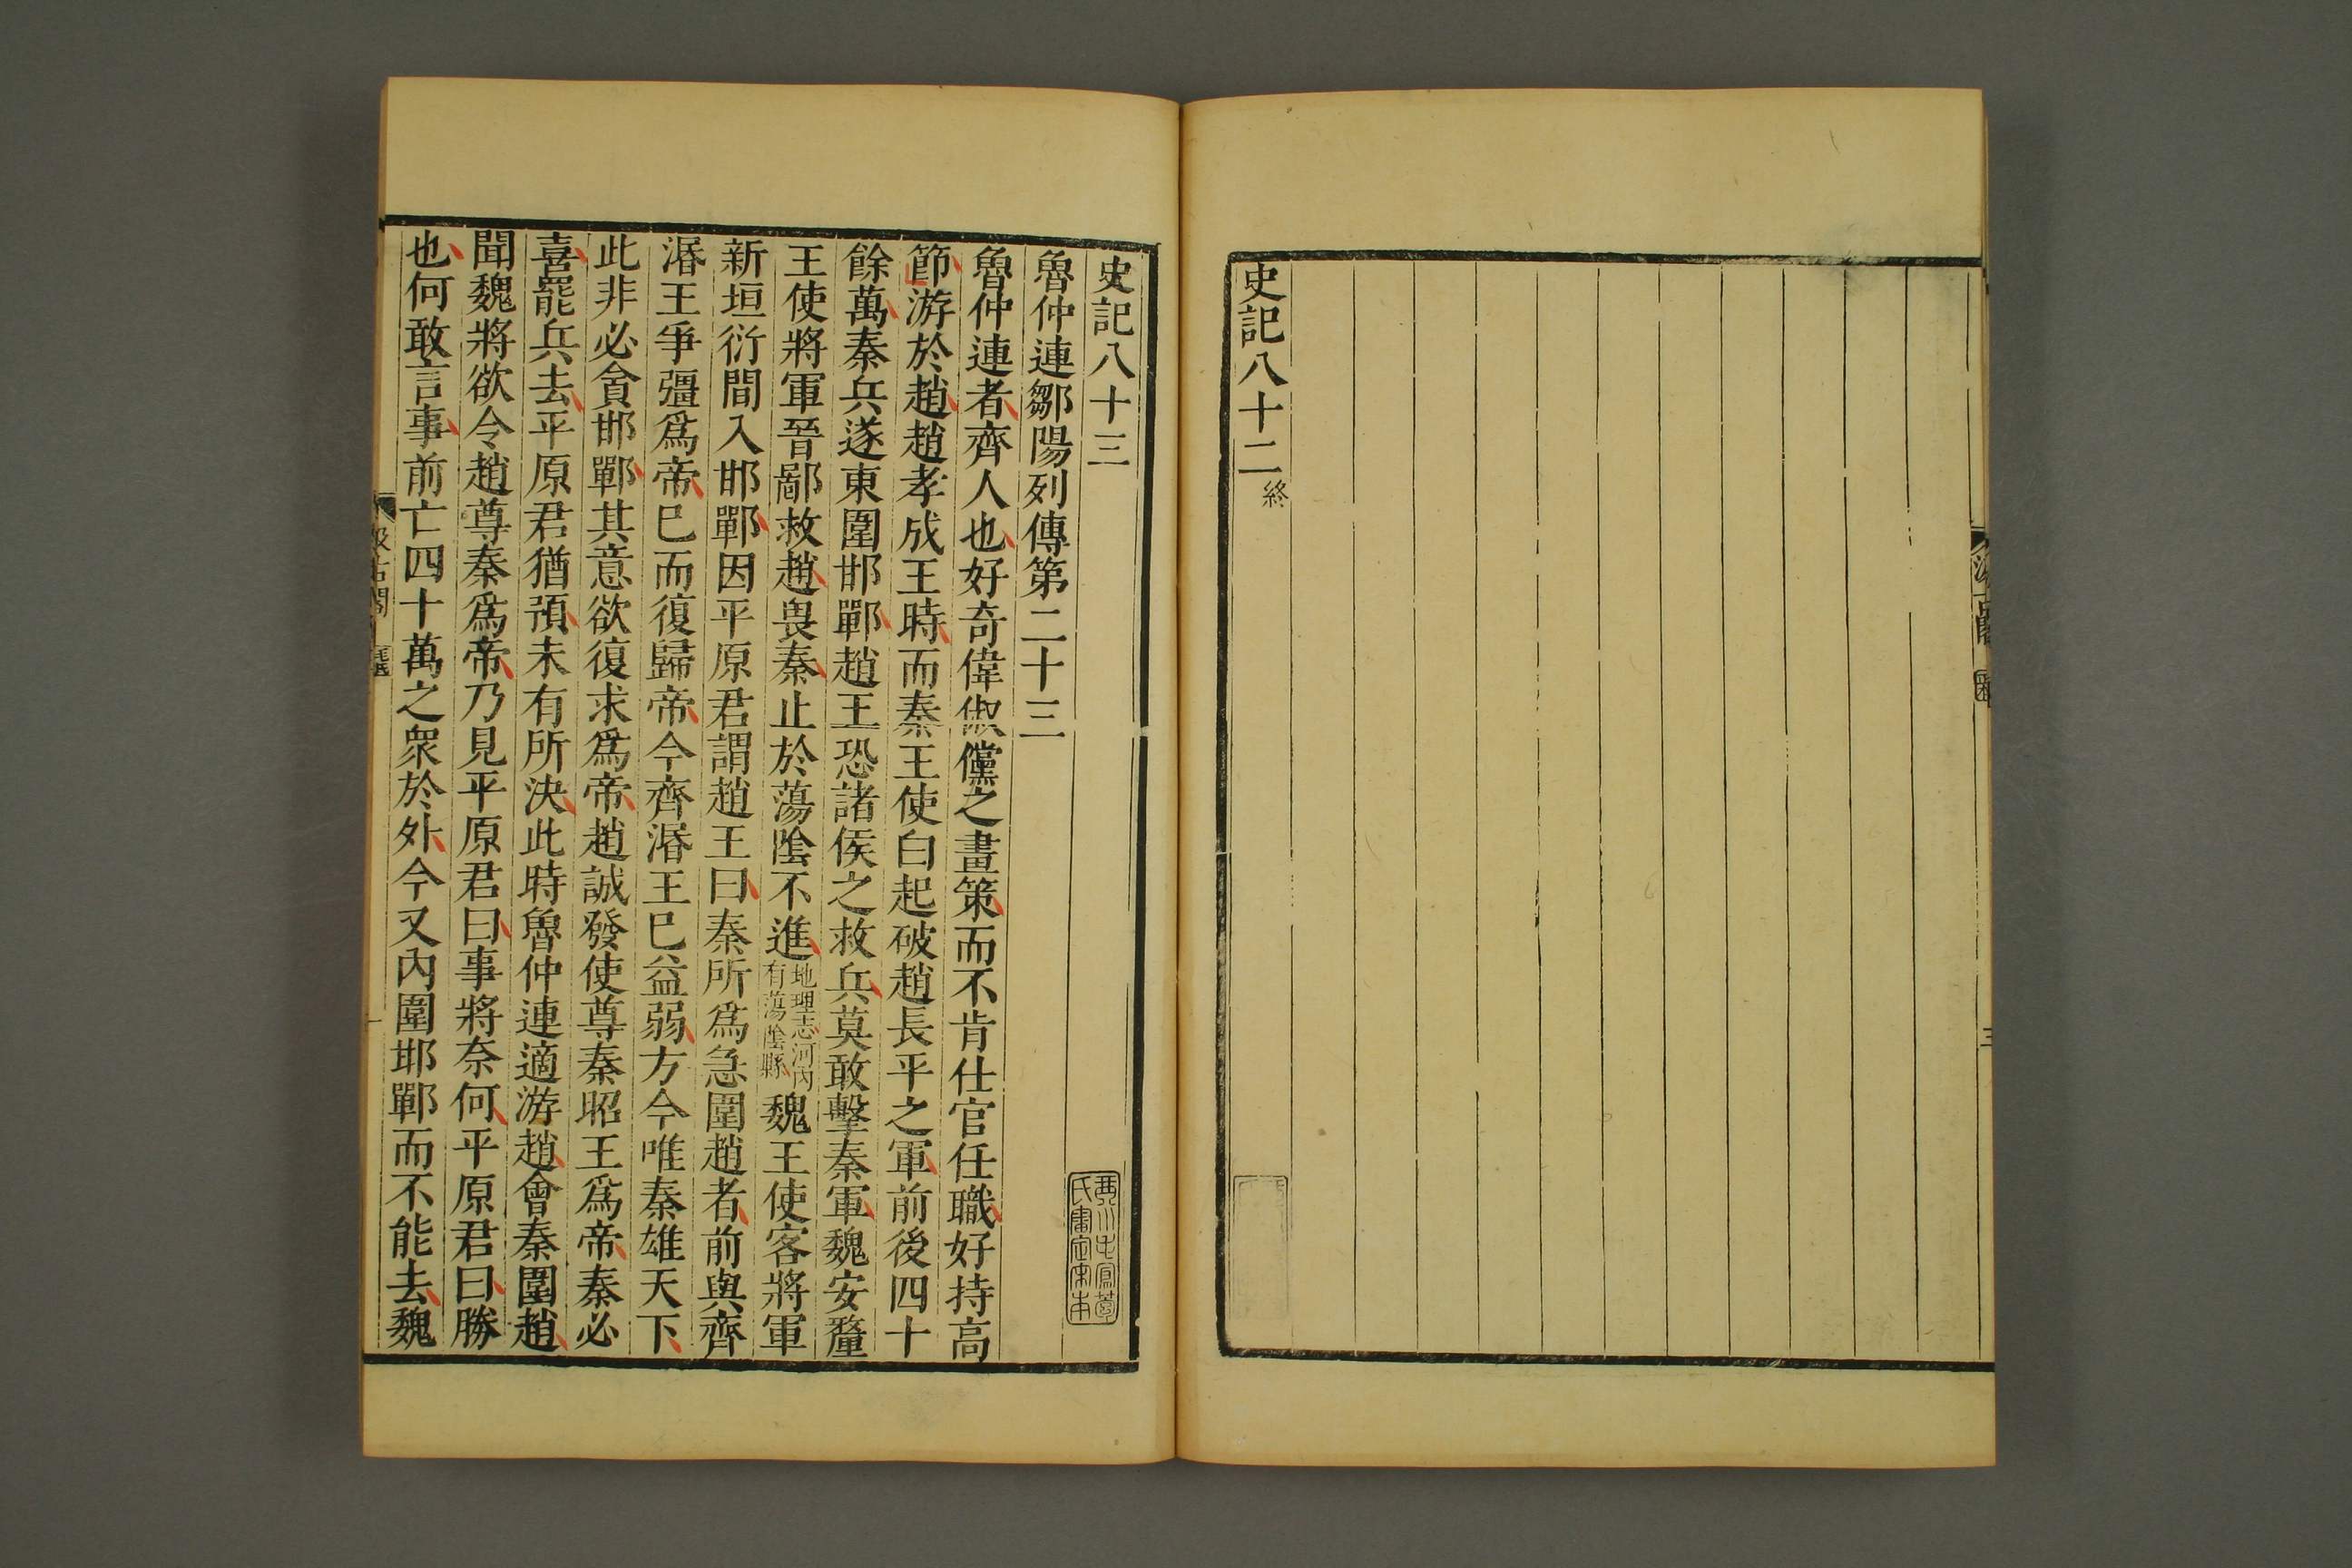 史記八十二終
史記八十三
魯仲連鄒陽列傳第二十三
魯仲連者齊人也好奇偉俶儻之畫策而不肯仕宦任職好持高
節游於趙趙孝成王時而秦王使白起破趙長平之軍前後四十
餘萬秦兵遂東圍邯鄲趙王恐諸侯之救兵莫敢擊秦軍魏安釐
王使將軍晉鄙救趙畏秦止於蕩陰不進地理志河內有蕩陰縣魏王使客將軍
新垣衍間入邯鄲因平原君謂趙王曰秦所爲急圍趙者前與齊
湣王爭彊爲帝已而復歸帝今齊湣王已益弱方今唯秦雄天下
此非必貪邯鄲其意欲復求爲帝趙誠發使尊秦昭王爲帝秦必
喜罷兵去平原君猶預未有所決此時魯仲連適游趙會秦圍趙
聞魏將欲令趙尊秦爲帝乃見平原君曰事將奈何平原君曰勝
也何敢言事前亡四十萬之衆於外今又內圍邯鄲而不能去魏
汲古閣